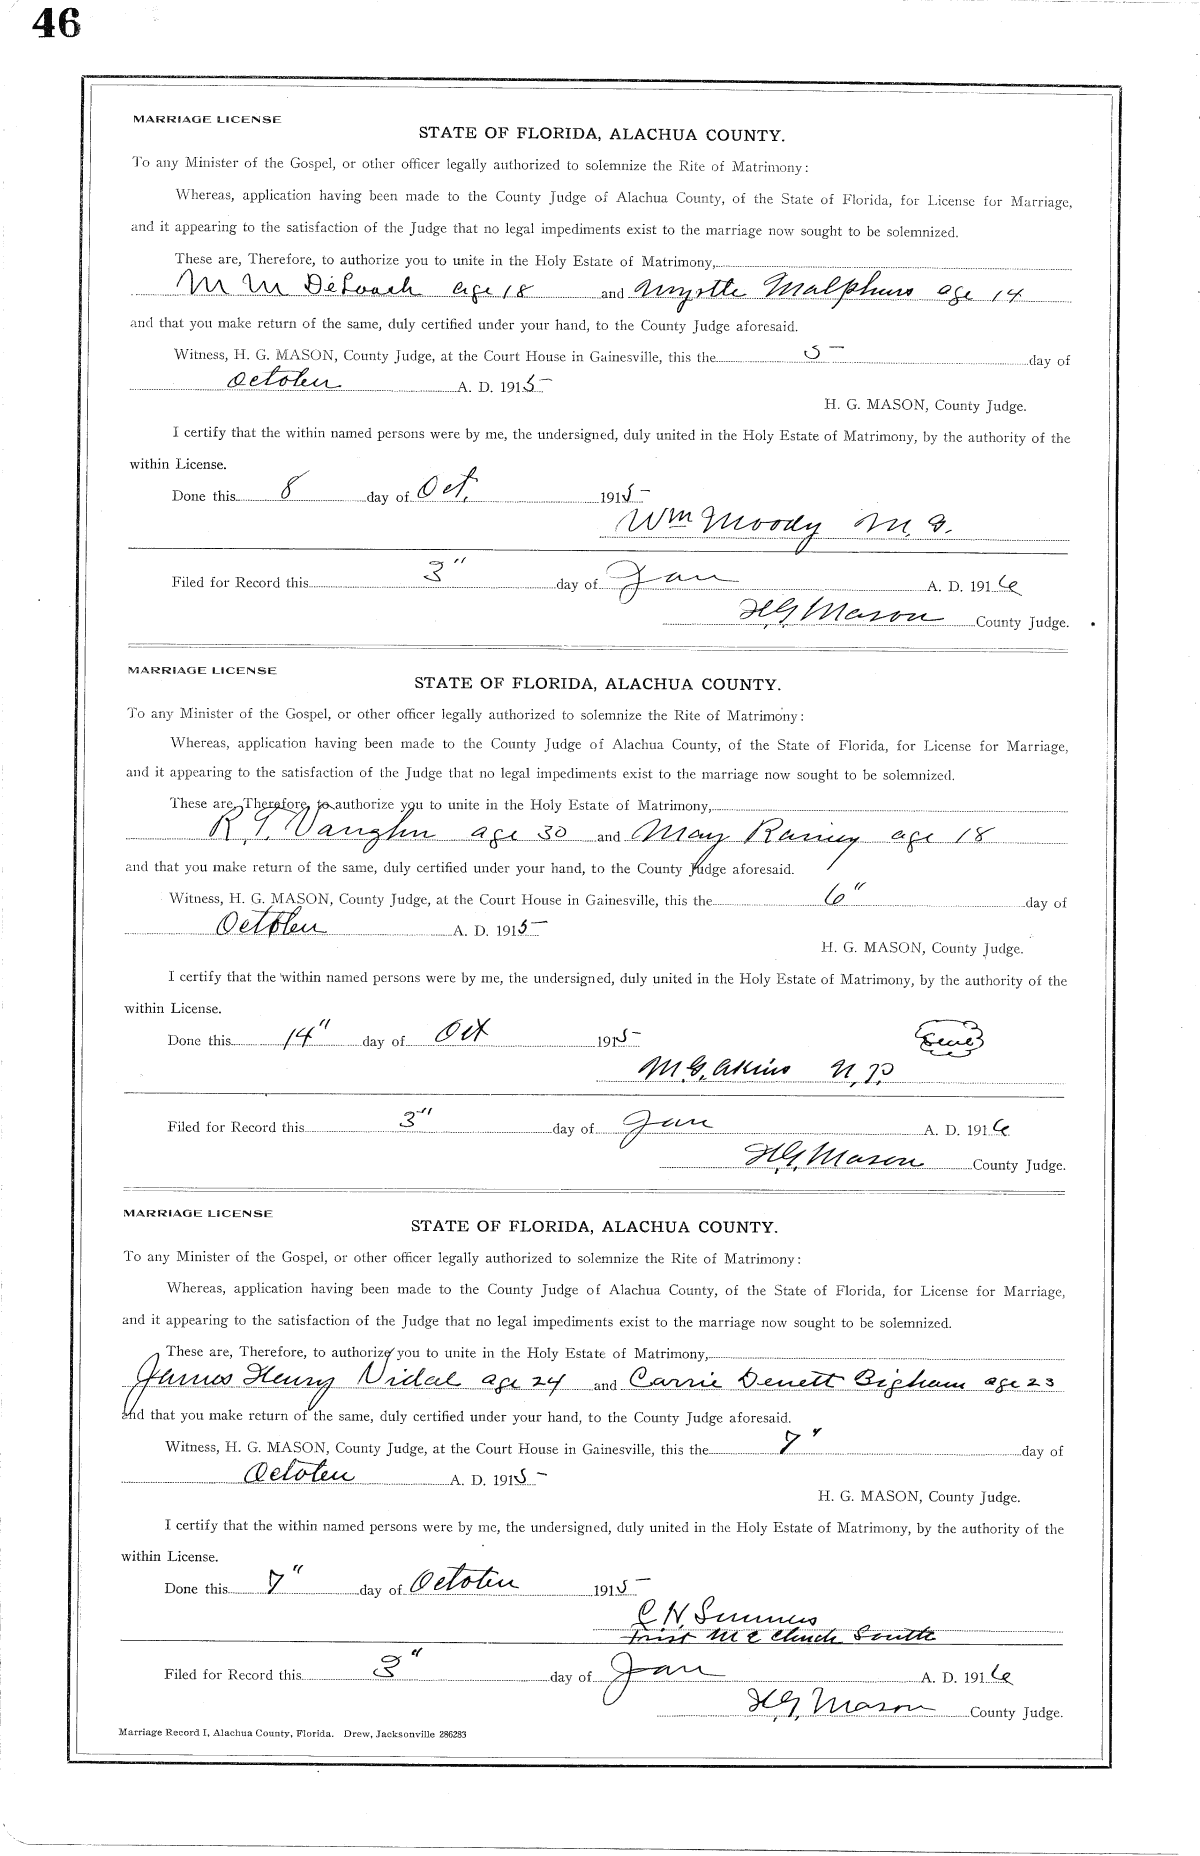 46
MARRIAGE LICENSE
STATE OF FLORIDA, ALACHUA COUNTY.
To any Minister of the Gospel, or other officer legally authorized to solemnize the Rite of Matrimony:
Whereas, application having been made to the County Judge of Alachua County, of the State of Florida, for License for Marriage,
and it appearing to the satisfaction of the Judge that no legal impediments exist to the marriage now sought to be solemnized.
These are, Therefore, to authorize you to unite in the Holy Estate of Matrimony,
M M DeLoach age 18 and Myrtle Malphurs age 14
and that you make return of the same, duly certified under your hand, to the County Judge aforesaid.
Witness, H. G. MASON, County Judge, at the Court House in Gainesville, this the 5 day of
October A. D. 1915
H. G. MASON, County Judge.
I certify that the within named persons were by me, the undersigned, duly united in the Holy Estate of Matrimony, by the authority of the
within License.
Done this 8 day of Oct. 1915
Wm Moody M. G.
Filed for Record this 3" day of Jan A. D. 1916
H. G. Mason County Judge.
MARRIAGE LICENSE
STATE OF FLORIDA, ALACHUA COUNTY.
To any Minister of the Gospel, or other officer legally authorized to solemnize the Rite of Matrimony:
Whereas, application having been made to the County Judge of Alachua County, of the State of Florida, for License for Marriage,
and it appearing to the satisfaction of the Judge that no legal impediments exist to the marriage now sought to be solemnized.
These are, Therefore, to authorize you to unite in the Holy Estate of Matrimony,
R. T. Vaughn age 30 and May Rainey age 18
and that you make return of the same, duly certified under your hand, to the County Judge aforesaid.
Witness, H. G. MASON, County Judge, at the Court House in Gainesville, this the 6" day of
October A. D. 1915
H. G. MASON, County Judge.
I certify that the within named persons were by me, the undersigned, duly united in the Holy Estate of Matrimony, by the authority of the
within License.
Done this 14" day of Oct 1915
M. G. Akins N. P.
Filed for Record this 3" day of Jan A. D. 1916
H. G. Mason County Judge.
MARRIAGE LICENSE
STATE OF FLORIDA, ALACHUA COUNTY.
To any Minister of the Gospel, or other officer legally authorized to solemnize the Rite of Matrimony:
Whereas, application having been made to the County Judge of Alachua County, of the State of Florida, for License for Marriage,
and it appearing to the satisfaction of the Judge that no legal impediments exist to the marriage now sought to be solemnized.
These are, Therefore, to authorize you to unite in the Holy Estate of Matrimony,
James Henry Vidal age 24 and Carrie Denett Bigham age 23
and that you make return of the same, duly certified under your hand, to the County Judge aforesaid.
Witness, H. G. MASON, County Judge, at the Court House in Gainesville, this the 7" day of
October A. D. 1915
H. G. MASON, County Judge.
I certify that the within named persons were by me, the undersigned, duly united in the Holy Estate of Matrimony, by the authority of the
within License.
Done this 7" day of October 1915
C. H. Summers
First M E Church South
Filed for Record this 3" day of Jan A. D. 1916
H. G. Mason County Judge.
Marriage Record I, Alachua County, Florida. Drew, Jacksonville 286283